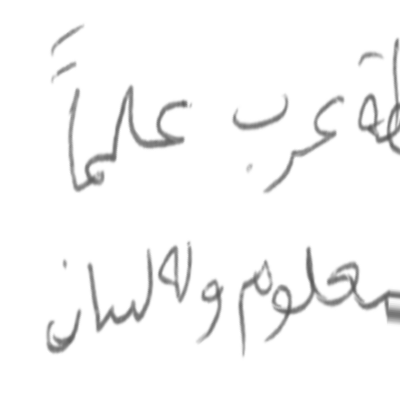 عرب علماً
معلوم ولا لسان